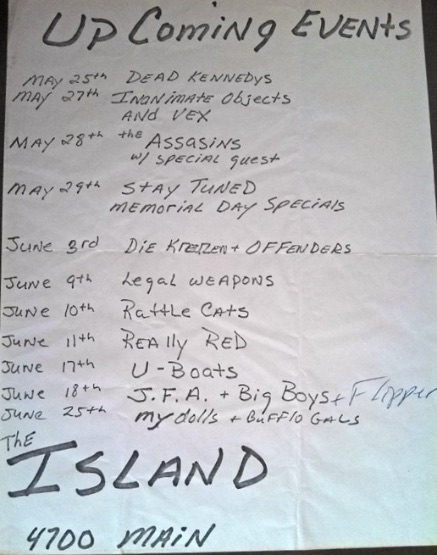 UPComing EVENtS
MAY 25th DEAD KENNEDYS
MAY 27th INANimATE Objects
ANd VEX
MAY 28th the ASSASiNS
w/ SPECIAL guest
MAY 29th StAY TUNED
MEMORIAL DAY SPECIALS
JUNE 3rd DiE KrEUZEN + OFFENDERS
JUNE 9th LegAL WEAPONS
JUNE 10th RAttlE CAts
JUNE 11th REAlly RED
JUNE 17th U-BoAts
JUNE 18th J.F.A. + Big Boys + Flipper
JUNE 25th my dolls + BUFFlO GALS
The
ISLAND
4700 MAiN